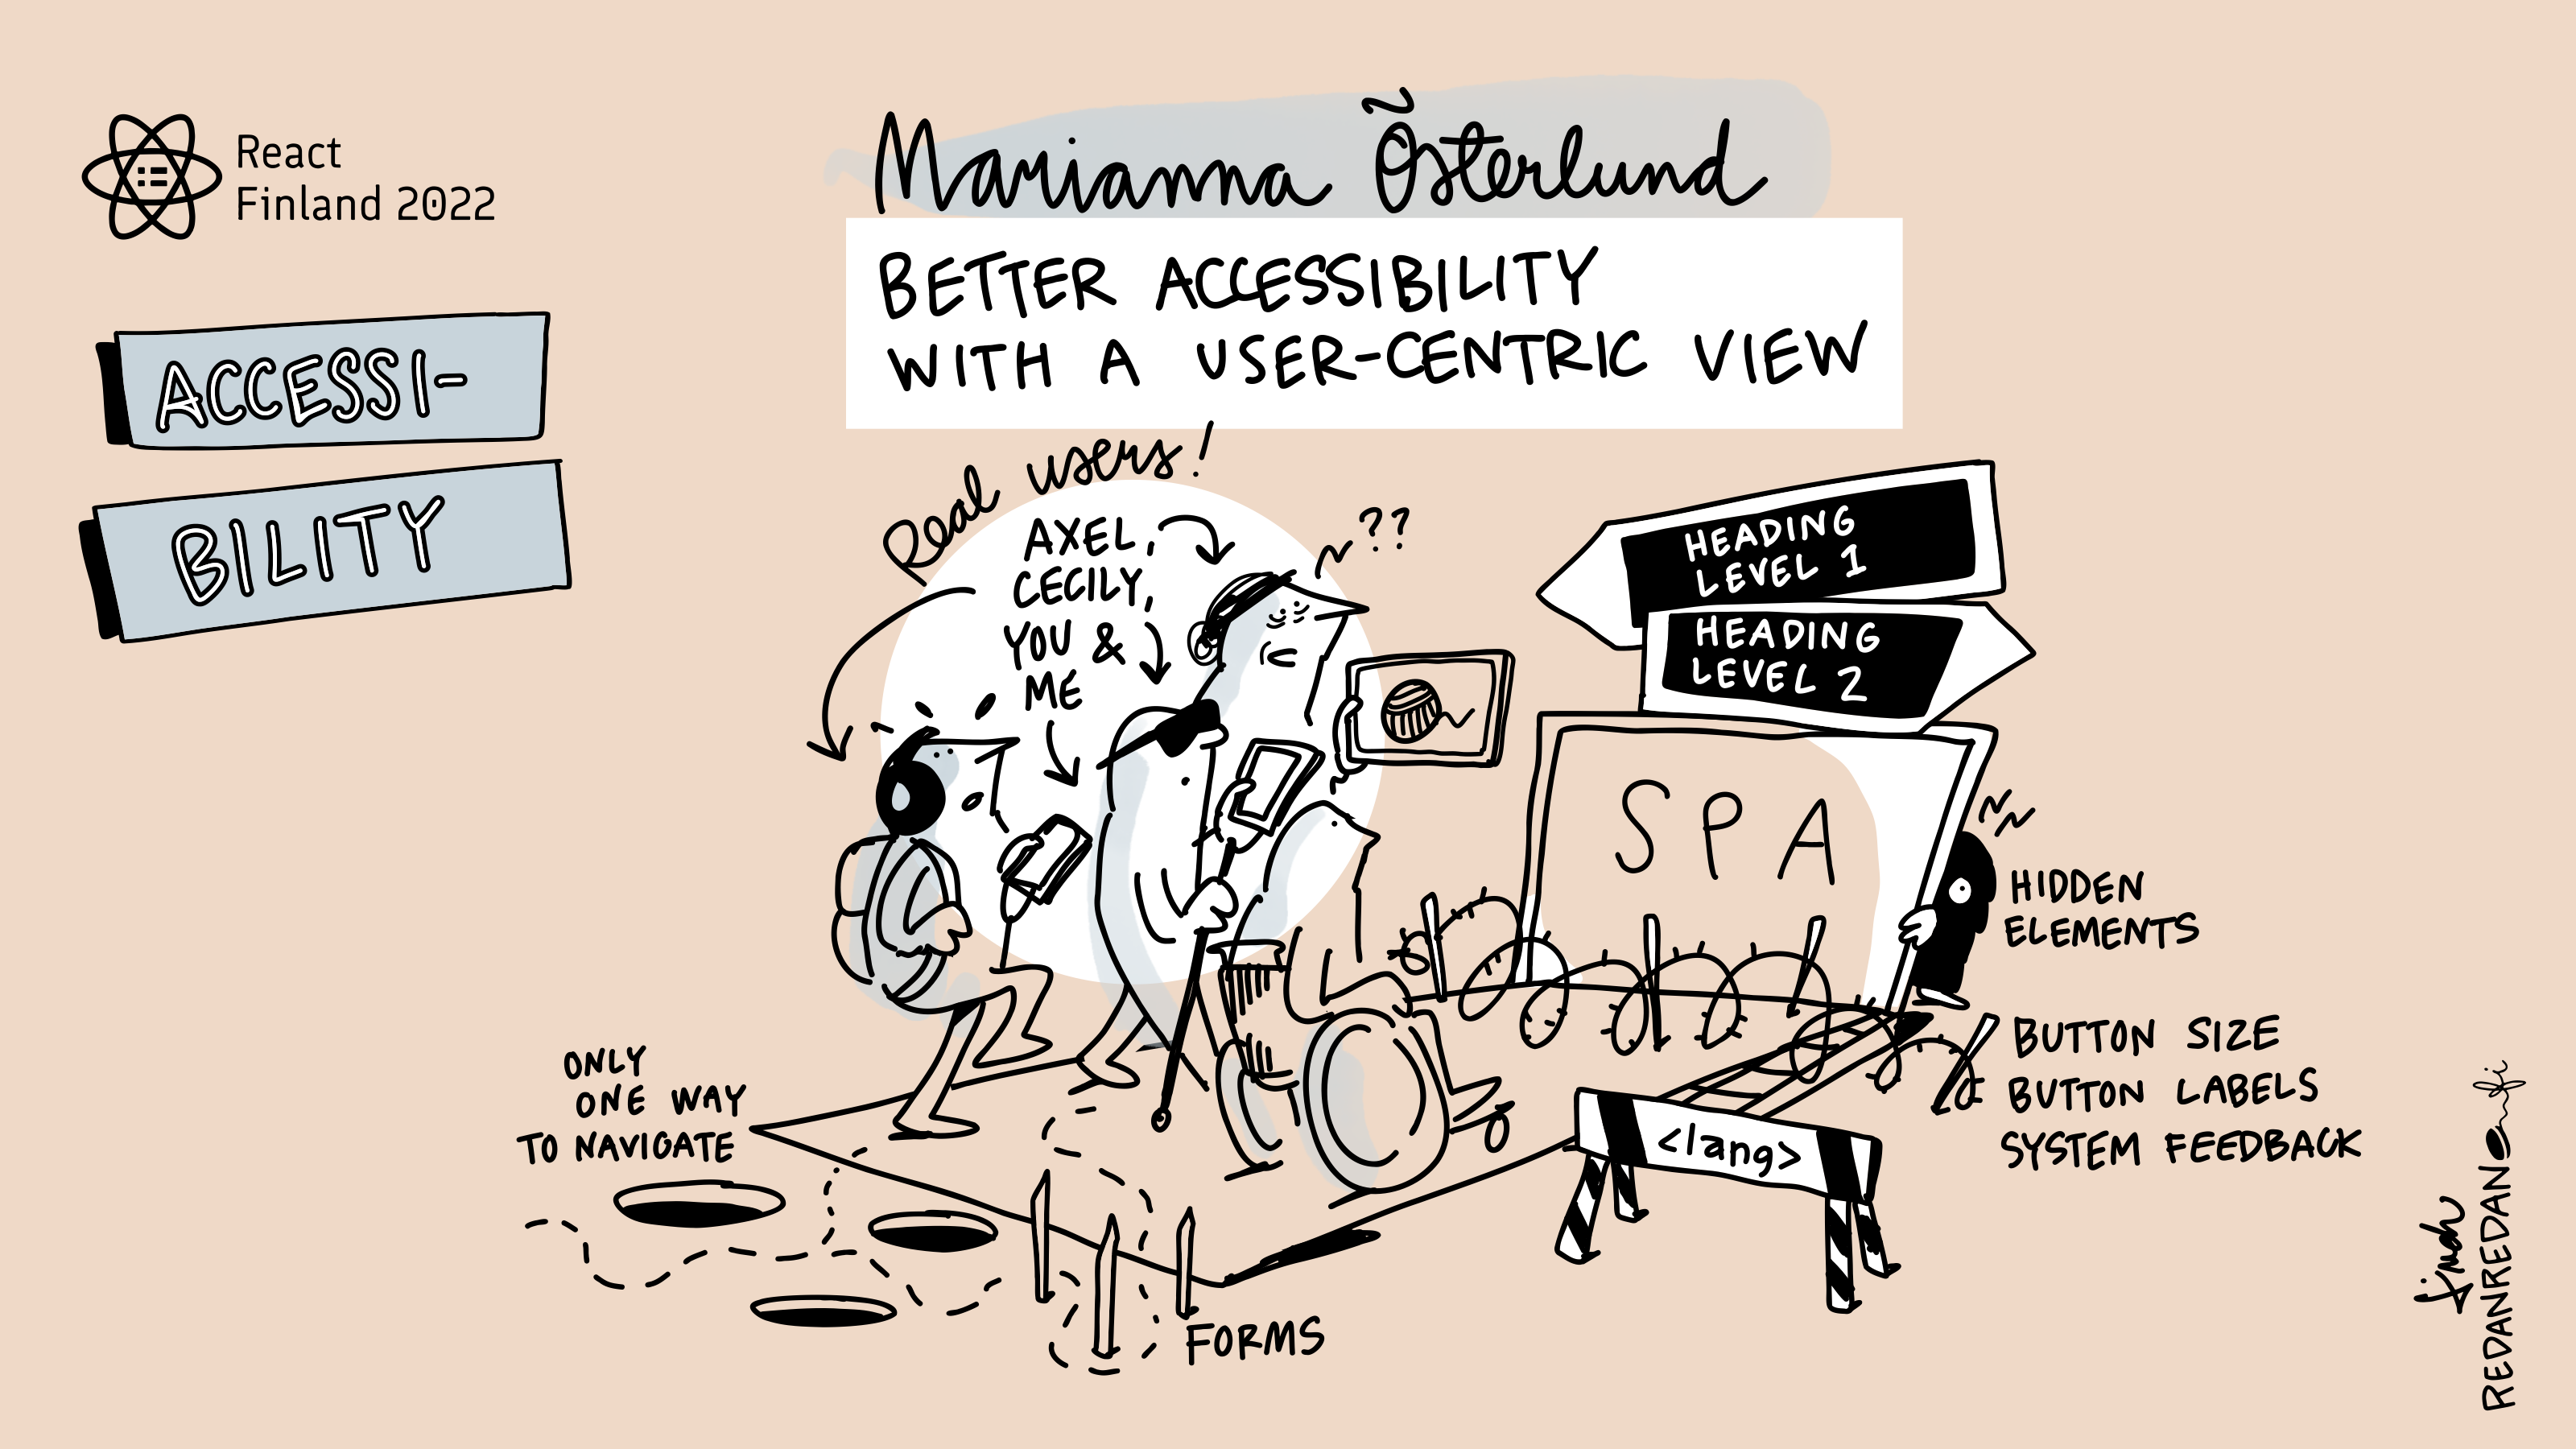 React
Finland 2022
ACCESSI-
BILITY
Marianna Õsterlund
BETTER ACCESSIBILITY
WITH A USER-CENTRIC VIEW
Real users!
AXEL,
CECILY,
YOU &
ME
??
HEADING
LEVEL 1
HEADING
LEVEL 2
SPA
HIDDEN
ELEMENTS
BUTTON SIZE
BUTTON LABELS
SYSTEM FEEDBACK
<lang>
ONLY
ONE WAY
TO NAVIGATE
FORMS
REDANREDAN